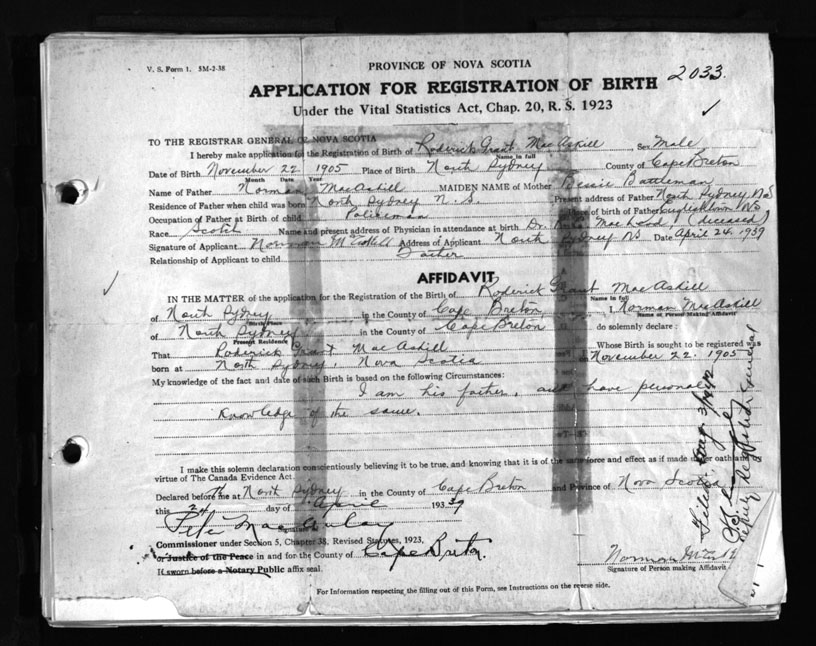 V. S. Form 1. 5M-2-38
PROVINCE OF NOVA SCOTIA
APPLICATION FOR REGISTRATION OF BIRTH 2033.
Under the Vital Statistics Act, Chap. 20, R. S. 1923
TO THE REGISTRAR GENERAL OF NOVA SCOTIA
I hereby make application for the Registration of Birth of Roderick Grant MacAskill Sex Male
Name in full
Date of Birth November 22 1905 Place of Birth North Sydney County of Cape Breton
Month Date Year
Name of Father Norman MacAskill MAIDEN NAME of Mother Bessie Battleman
Residence of Father when child was born North Sydney N.S. Present address of Father North Sydney NS
Occupation of Father at Birth of child Policeman Place of Birth of Father NS
Race Scotch Name and present address of Physician in attendance at birth Dr. MacLeod (deceased)
Signature of Applicant Norman McAskill Address of Applicant North Sydney NS Date April 24. 1939
Relationship of Applicant to child Father
AFFIDAVIT
IN THE MATTER of the application for the Registration of the Birth of Roderick Grant MacAskill
Name in full
of North Sydney in the County of Cape Breton I, Norman MacAskill
Birth Place Name of Person Making Affidavit
of North Sydney in the County of Cape Breton do solemnly declare:
Present Residence
That Roderick Grant MacAskill Whose Birth is sought to be registered was
born at North Sydney, Nova Scotia November 22. 1905
My knowledge of the fact and date of such Birth is based on the following Circumstances:
I am his father, and have personal
knowledge of the same.
I make this solemn declaration conscientiously believing it to be true, and knowing that it is of the same force and effect as if made under oath and by
virtue of The Canada Evidence Act.
Declared before me at North Sydney in the County of Cape Breton and Province of Nova Scotia
this 24th day of April 1939
Pete MacAulay
Signature
Commissioner under Section 5, Chapter 38, Revised Statutes, 1923,
or Justice of the Peace in and for the County of Cape Breton.
If sworn before a Notary Public affix seal.
Norman McAsk
Signature of Person making Affidavit
For Information respecting the filling out of this Form, see Instructions on the reverse side.
Filed Aug. 3/1942
Deputy Registrar General